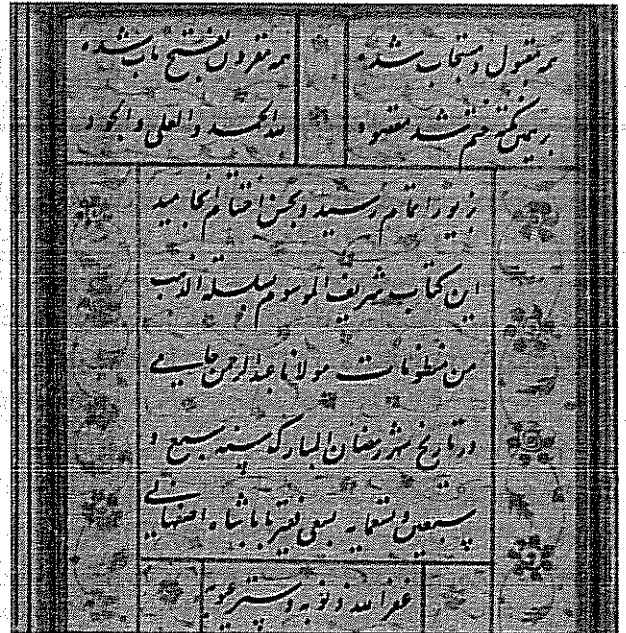 همه مقبول و مستجاب شده
همه مقرون بفتح باب شده
بر همین نکته ختم شد مقصود
لله الحمد والعلی والجود
بزیور اتمام رسید و بحسن اختتام انجامید
این کتاب شریف الموسوم بسلسلة الذهب
من منظومات مولانا عبدالرحمن جامی
در تاریخ شهر رمضان المبارک سنه سبع و
سبعین و تسعمایه بسعی فقیر بابا شاه اصفهانی
غفر الله ذنوبه و ستر عیوبه